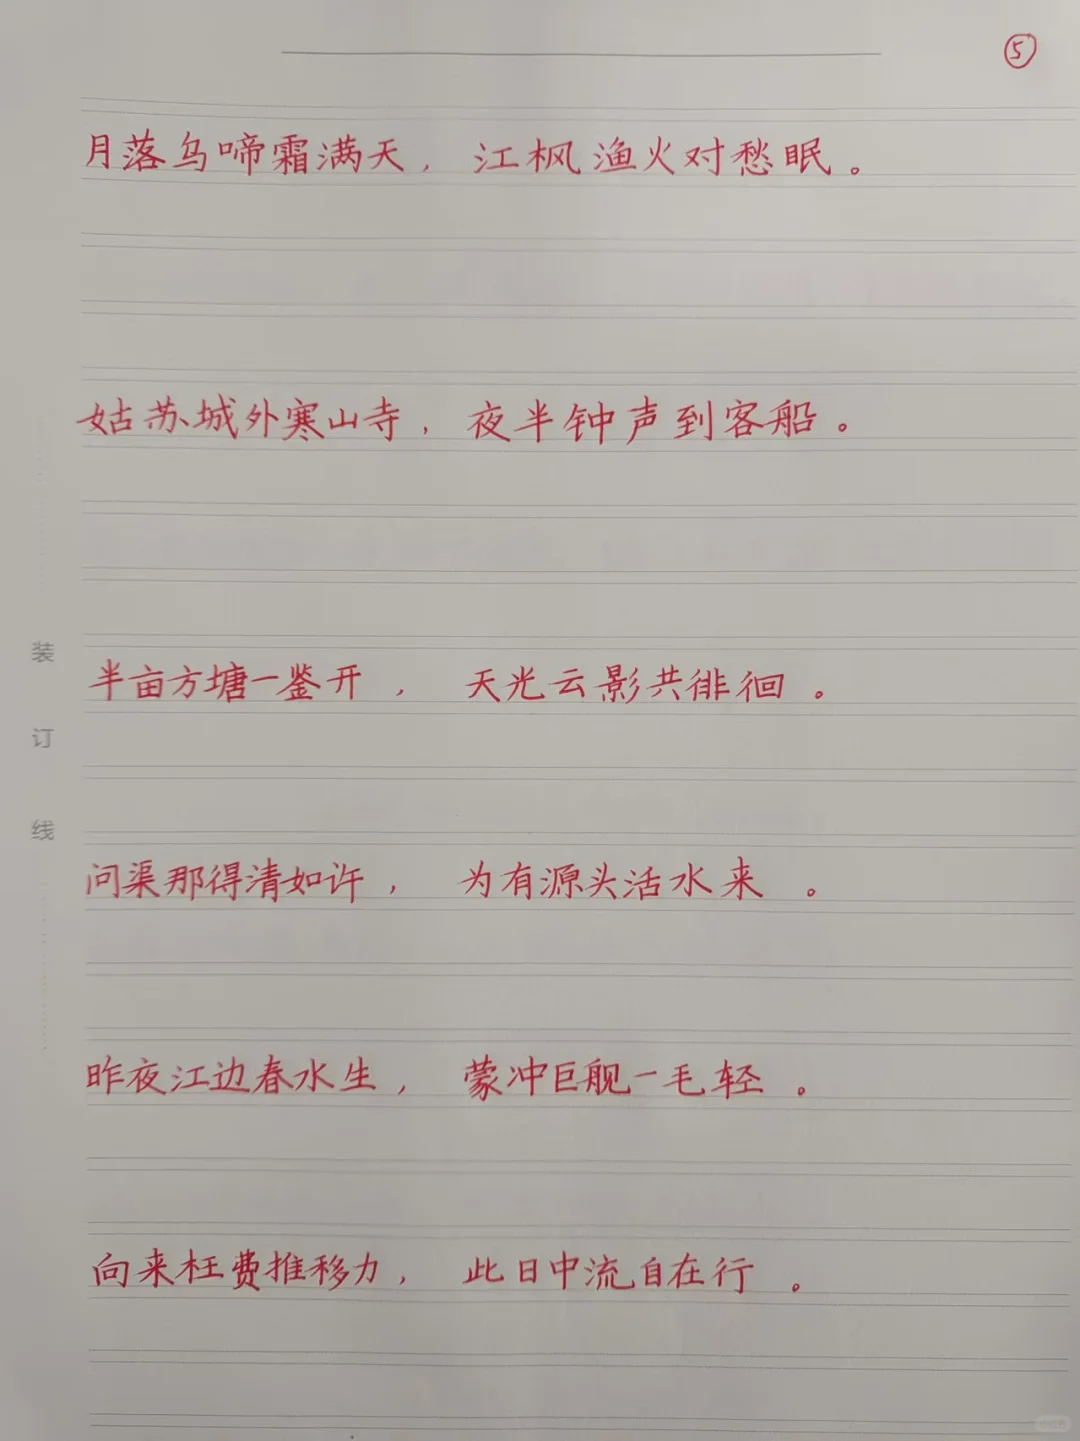 ⑤
月落乌啼霜满天，江枫渔火对愁眠。
姑苏城外寒山寺，夜半钟声到客船。
半亩方塘一鉴开，天光云影共徘徊。
装
订
问渠那得清如许，为有源头活水来。
线
昨夜江边春水生，蒙冲巨舰一毛轻。
向来枉费推移力，此日中流自在行。